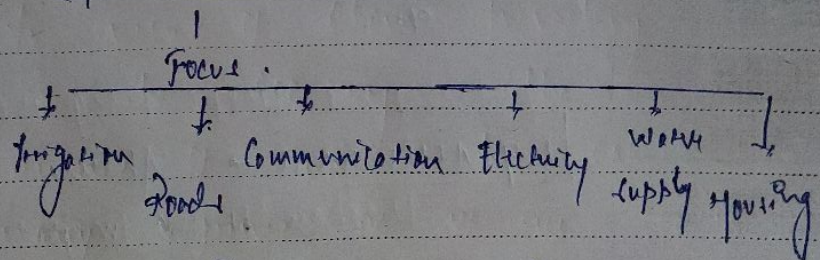 Focus.
Irrigation
Roads
Communication
Electricity
Water supply
Housing